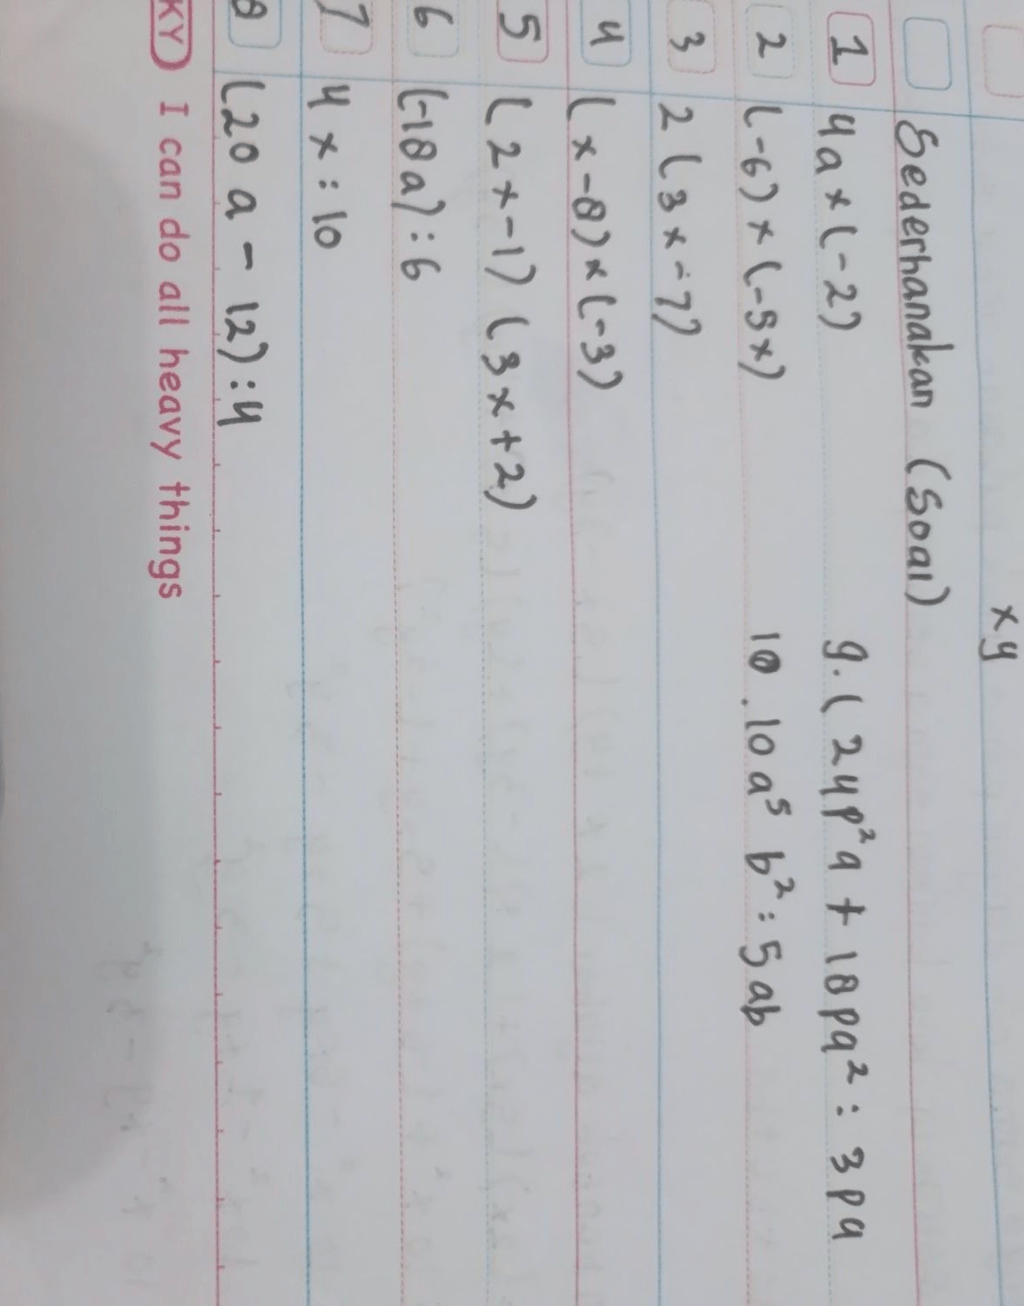 xy
Sederhanakan (soal)
1 4a x (-2)
9. (24p²q + 18pq² : 3pq
2 (-6) x (-5x)
10. 10a⁵ b² : 5ab
3 2(3x-7)
4 (x-8) x (-3)
5 (2x-1) (3x+2)
6 (-18a) : 6
7 4x : 10
8 (20a - 12) : 4
KY I can do all heavy things